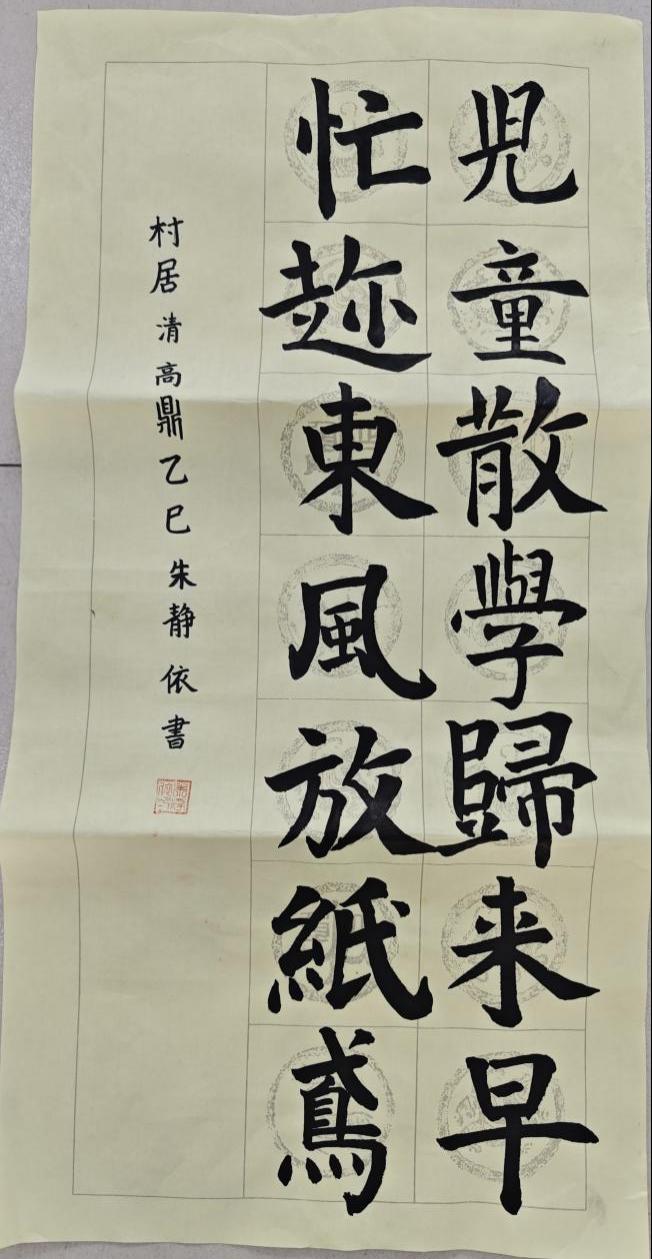 兒童散學歸来早
忙趂東風放紙鳶
村居 清 高鼎 乙巳 朱静依書